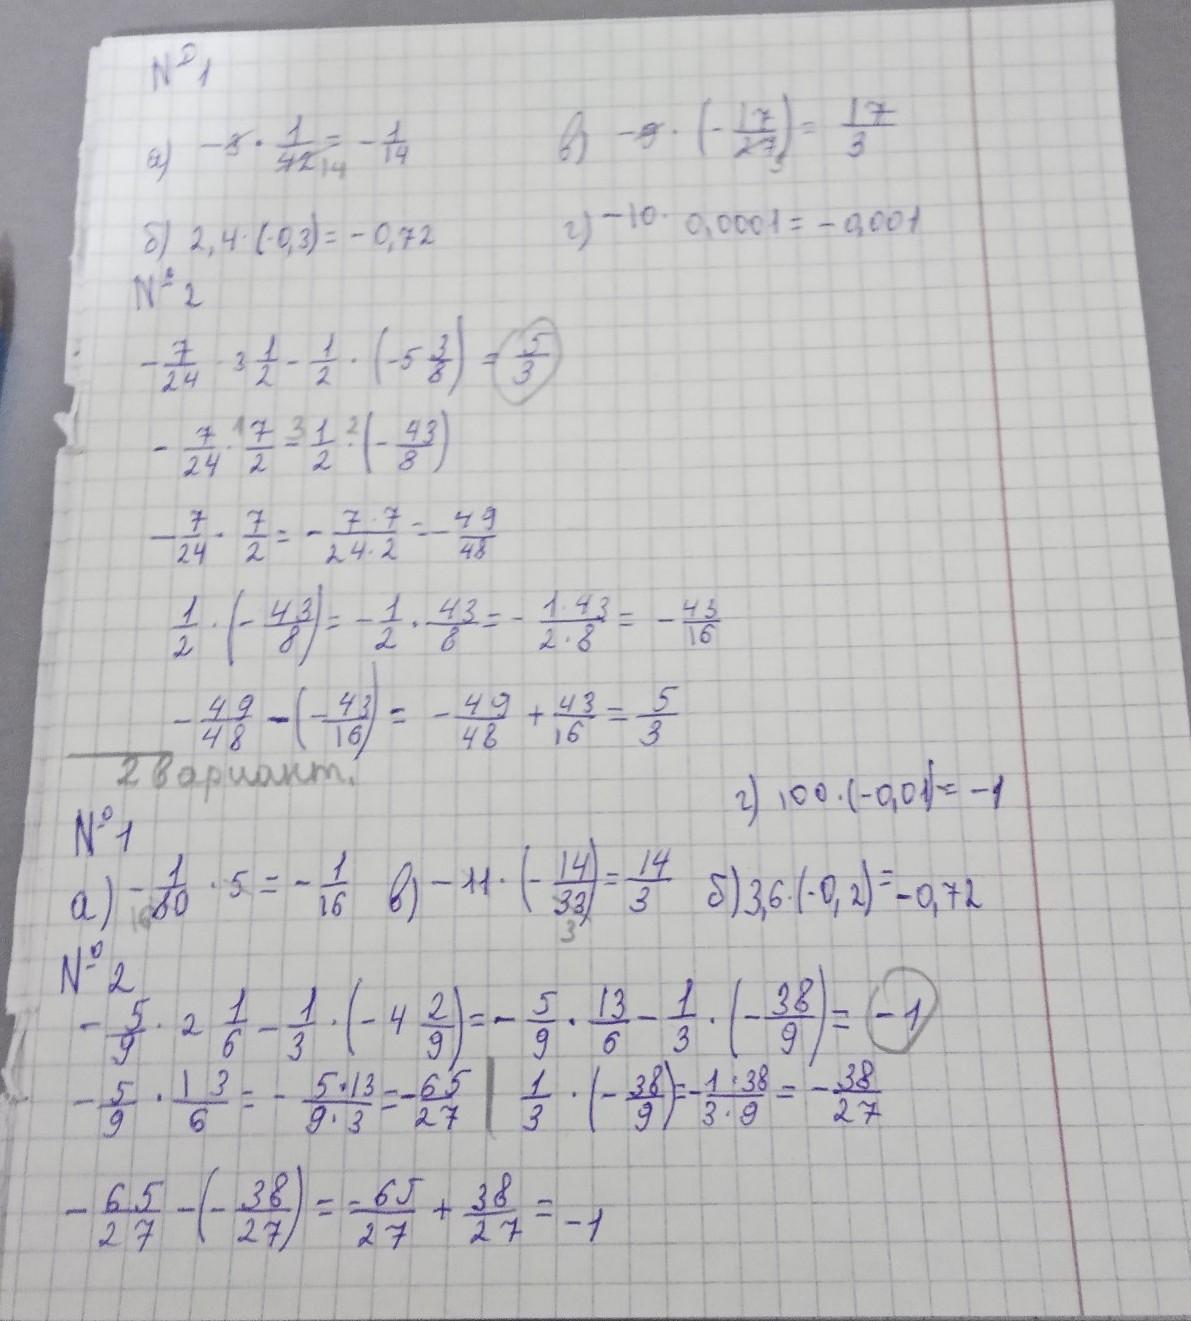 №1
а) -3 · 1/42 14 = -1/14 в) -9 · (-17/27 3) = 17/3
б) 2,4·(-0,3) = -0,72 г) -10 · 0,0001 = -0,001
№2
-7/24 · 3 1/2 - 1/2 · (-5 3/8) = 5/3
-7/24 ·1 7/2 -3 1/2 ·2 (-43/8)
-7/24 · 7/2 = -7·7/24·2 = -49/48
1/2 · (-43/8) = -1/2 · 43/8 = -1·43/2·8 = -43/16
-49/48 - (-43/16) = -49/48 + 43/16 = 5/3
2 вариант.
г) 100·(-0,01) = -1
№1
а) -1/80 16 · 5 = -1/16 в) -11 · (-14/33 3) = 14/3 б) 3,6·(-0,2) = -0,72
№2
-5/9 · 2 1/6 - 1/3 · (-4 2/9) = -5/9 · 13/6 - 1/3 · (-38/9) = -1
-5/9 · 13/6 = -5·13/9·3 = -65/27 | 1/3 · (-38/9) = -1·38/3·9 = -38/27
-65/27 - (-38/27) = -65/27 + 38/27 = -1